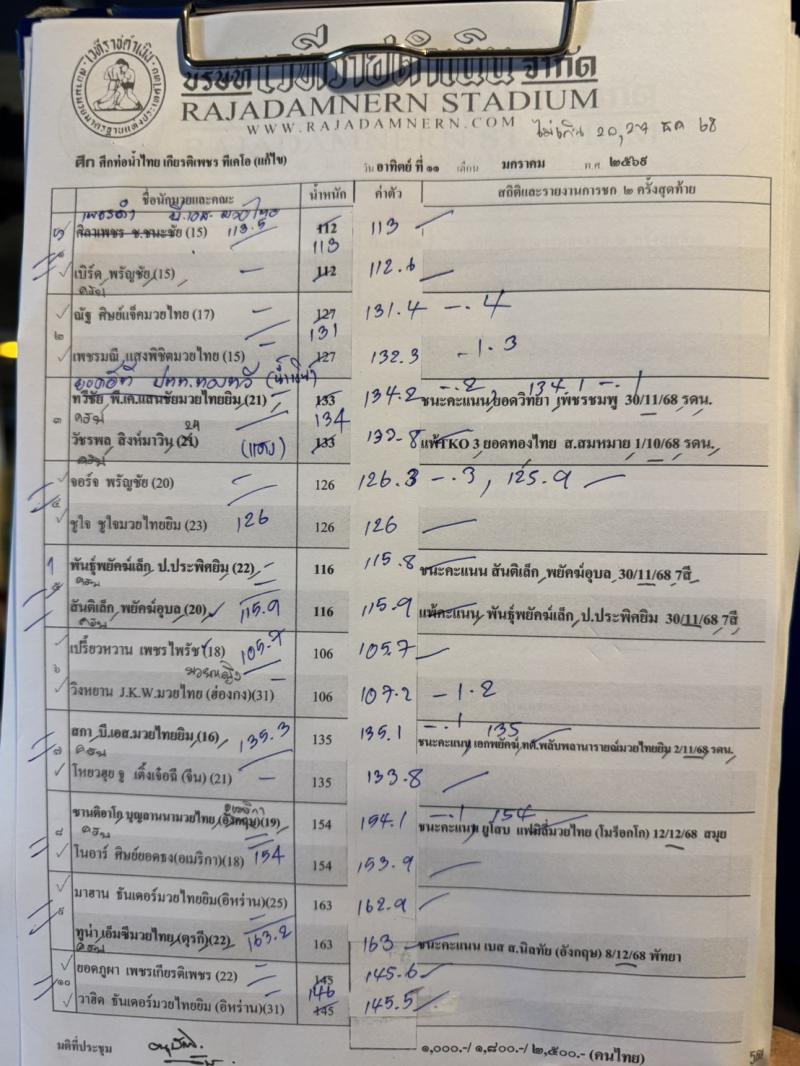 บริษัท เวทีราชดำเนิน จำกัด
RAJADAMNERN STADIUM
WWW.RAJADAMNERN.COM
ไม่เกิน ๒๐,๖๗ ธค ๖๘
ศึก ศึกท่อน้ำไทย เกียรติเพชร ทีเคโอ (แก้ไข) วัน อาทิตย์ ที่ ๑๑ เดือน มกราคม พ.ศ. ๒๕๖๙
ชื่อนักมวยและคณะ น้ำหนัก ค่าตัว สถิติและรายงานการชก ๒ ครั้งสุดท้าย
เพชรดำ พี.เอส.มวยไทย
ศิลาเพชร ช.ชนะชัย (15) 113.5 112 113
113
เบิร์ด พรัญชัย (15) 112 112.6
ครับ
ณัฐ ศิษย์แจ็คมวยไทย (17) 127 131.4 -.4
๒ 131
เพชรมณี แสงพิชิตมวยไทย (15) 127 132.3 -1.3
(น้ำเงิน)
ทวีชัย พี.เค.แสนชัยมวยไทยยิม (21) 133 134.2 -.2 134.1 -.1 ชนะคะแนน ยอดวิทยา เพชรชมพู 30/11/68 รดน.
๓ ครับ 134
วัชรพล สิงห์มาวิน (21) 24 (แดง) 133 133.8 แพ้TKO 3 ยอดทองไทย ส.สมหมาย 1/10/68 รดน.
ครับ
จอร์จ พรัญชัย (20) 126 126.3 -.3, 125.9
๔
ชูใจ ชูใจมวยไทยยิม (23) 126 126 126
พันธุ์พยัคฆ์เล็ก ป.ประพิศยิม (22) 116 115.8 ชนะคะแนน สันติเล็ก พยัคฆ์อุบล 30/11/68 7สี
๕ ครับ
สันติเล็ก พยัคฆ์อุบล (20) 115.9 116 115.9 แพ้คะแนน พันธุ์พยัคฆ์เล็ก ป.ประพิศยิม 30/11/68 7สี
ครับ
เปรี้ยวหวาน เพชรไพรัช (18) 105.7 106 105.7
๖ มวยหญิง
วิงหยาน J.K.W.มวยไทย (ฮ่องกง)(31) 106 107.2 -1.2
สกา บี.เอส.มวยไทยยิม (16) 135.3 135 135.1 -.1 135 ชนะคะแนน เอกพยัคฆ์ ทศ.พลับพลานารายณ์มวยไทยยิม 2/11/68 รดน.
๗ ครับ
โหยวสุย จู เติ้งเจ๋อฉี (จีน) (21) 135 133.8
อเมริกา
ซานติอาโก บุญลานนามวยไทย (อังกฤษ)(19) 154 154.1 -.1 154 ชนะคะแนน ยูโสบ แฟมิลี่มวยไทย (โมร็อกโก) 12/12/68 สมุย
๘ ครับ
โนอาร์ ศิษย์ยอดธง(อเมริกา)(18) 154 154 153.9
มาฮาน ธันเดอร์มวยไทยยิม(อิหร่าน)(25) 163 162.9
๙
ทูน่า เอ็มซีมวยไทย (ตุรกี)(22) 163.2 163 163 ชนะคะแนน เบส ส.นิลทัย (อังกฤษ) 8/12/68 พัทยา
ครับ
ยอดภูผา เพชรเกียรติเพชร (22) 145 145.6
๑๐ 146
วาฮิด ธันเดอร์มวยไทยยิม (อิหร่าน)(31) 145 145.5
มติที่ประชุม ๑,๐๐๐.-/ ๑,๘๐๐.-/ ๒,๕๐๐.- (คนไทย)